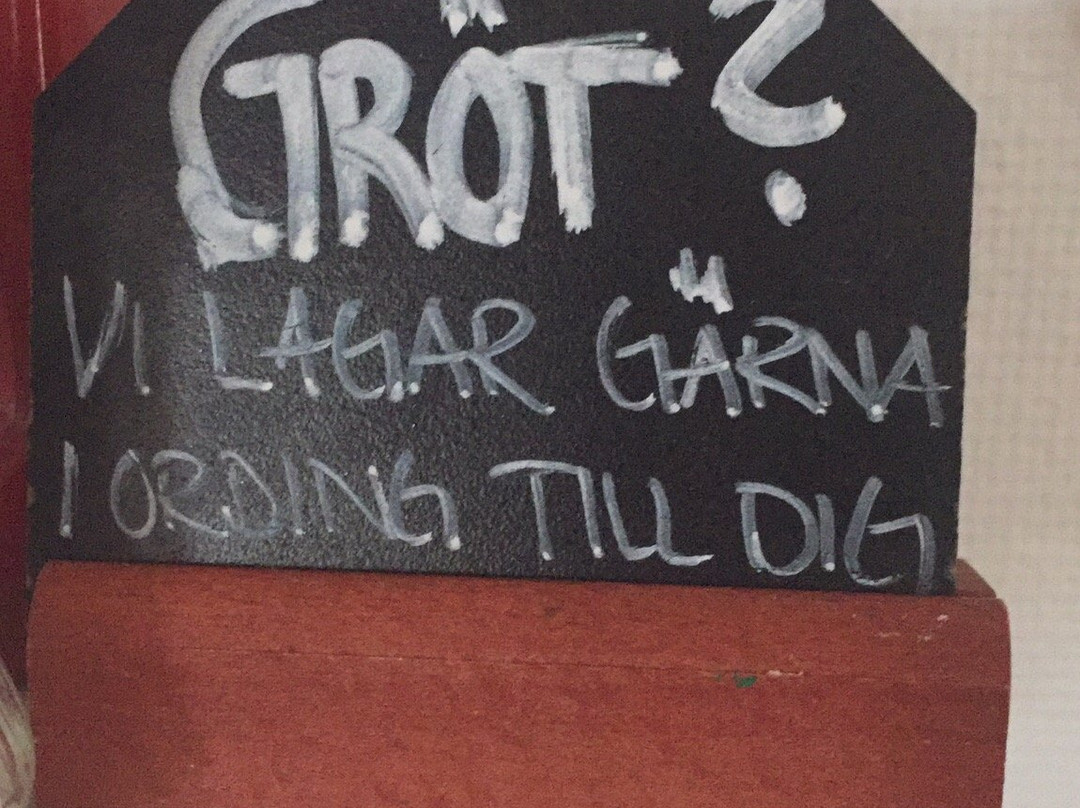 GRÖT ?
VI LAGAR GÄRNA
I ORDING TILL DIG